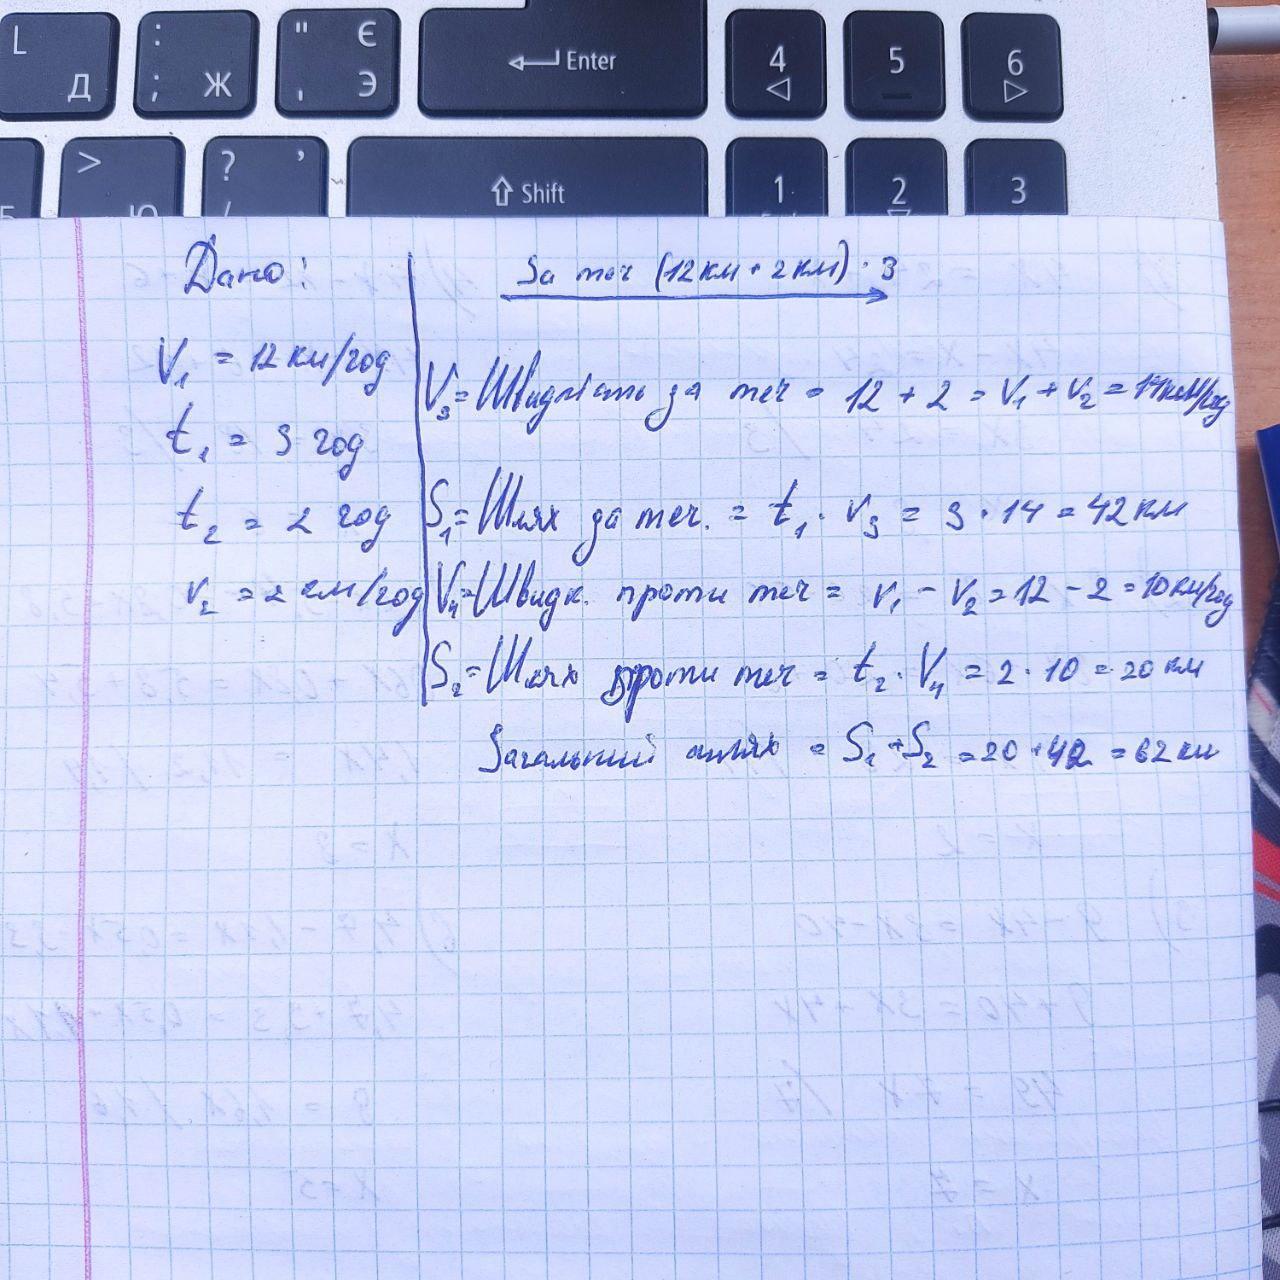 L Д
: ; Ж
" Є ' Э
Enter
4
5
6
>
? ' /
Shift
1
2
3
Дано:
V₁ = 12 км/год
t₁ = 3 год
t₂ = 2 год
v₂ = 2 км/год
За теч (12км + 2км) · 3
V₃ = Швидкість за теч = 12 + 2 = V₁ + V₂ = 14км/год
S₁ = Шлях за теч. = t₁ · V₃ = 3 · 14 = 42 км
V₄ = Швидк. проти теч = V₁ - V₂ = 12 - 2 = 10км/год
S₂ = Шлях проти теч = t₂ · V₄ = 2 · 10 = 20 км
Загальний шлях = S₁ + S₂ = 20 + 42 = 62 км